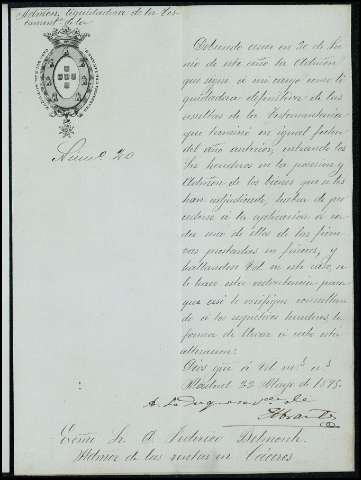 Admon. liquidadora de la Tes-
tamenta. de la
Núm.o 20
Debiendo cesar en 30 de Ju-
nio de este año la Admón
que sigue á mi cargo como li-
quidadora definitiva de las
resultas de la Testamentaria
que terminó en igual fecha
del año anterior, entrando los
Sres herederos en la posesion y
Admón de los bienes que se les
han adjudicado, habrá de pro-
cederse á la aplicacion á ca-
da uno de ellos de las fian-
zas prestadas en fincas, y
hallandose Vd. en este caso, se
le hace esta advertencia para
que asi se verifique consultan-
do á los respectivos herederos la
forma de llevar á cabo esta
alteracion.
Dios gue á Vd ms. as.
Madrid 22 Mayo de 1895.
La Duquesa viuda de
Abrantes
Señor Dn. Federico Belmonte
Admor de las rentas en Cáceres